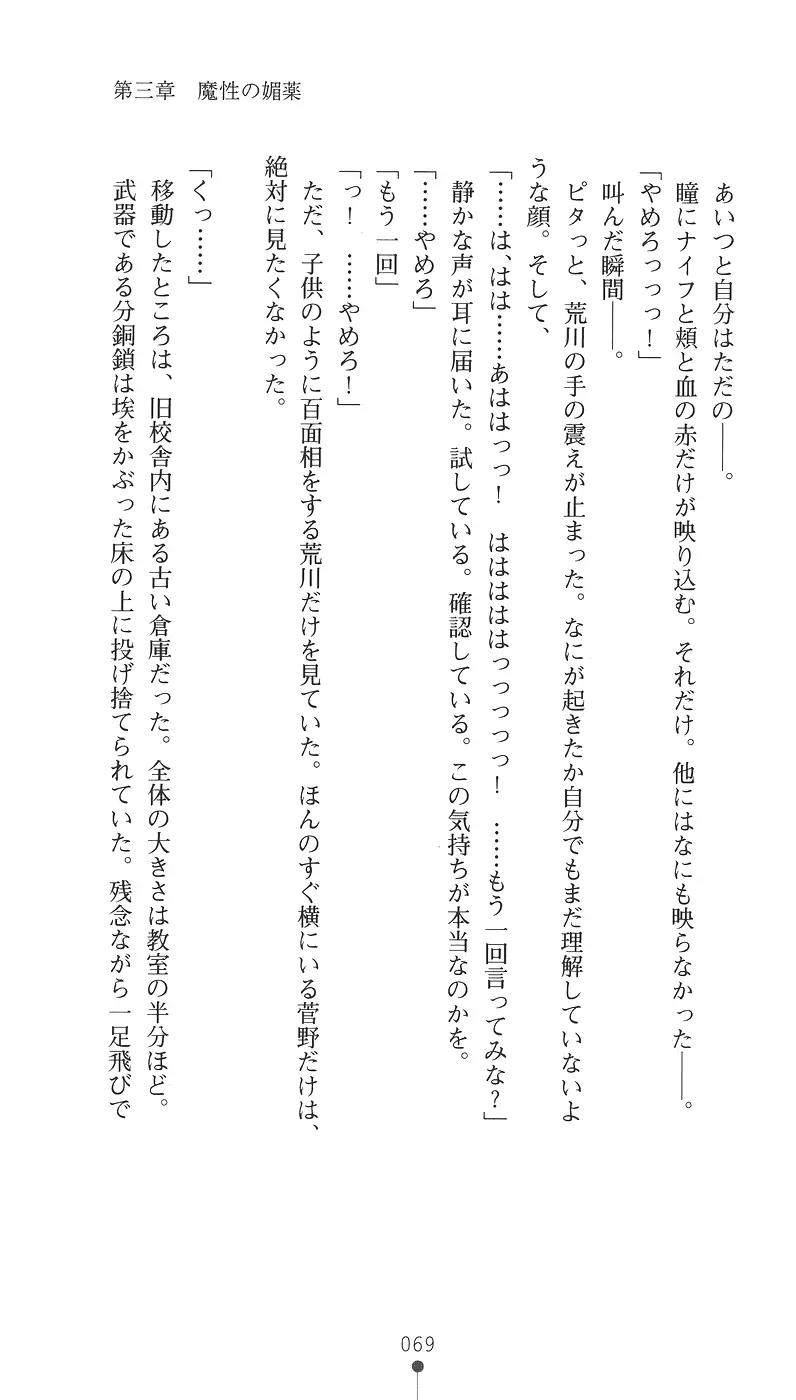 第三章　魔性の媚薬
あいつと自分はただの――。
瞳にナイフと頬と血の赤だけが映り込む。それだけ。他にはなにも映らなかった――。
「やめろっっっ！」
叫んだ瞬間――。
ピタっと、荒川の手の震えが止まった。なにが起きたか自分でもまだ理解していないよ
うな顔。そして、
「……は、はは……あははっっ！　はははははっっっっっ！　……もう一回言ってみな？」
静かな声が耳に届いた。試している。確認している。この気持ちが本当なのかを。
「……やめろ」
「もう一回」
「っ！　……やめろ！」
ただ、子供のように百面相をする荒川だけを見ていた。ほんのすぐ横にいる菅野だけは、
絶対に見たくなかった。
「くっ……」
移動したところは、旧校舎内にある古い倉庫だった。全体の大きさは教室の半分ほど。
武器である分銅鎖は埃をかぶった床の上に投げ捨てられていた。残念ながら一足飛びで
069